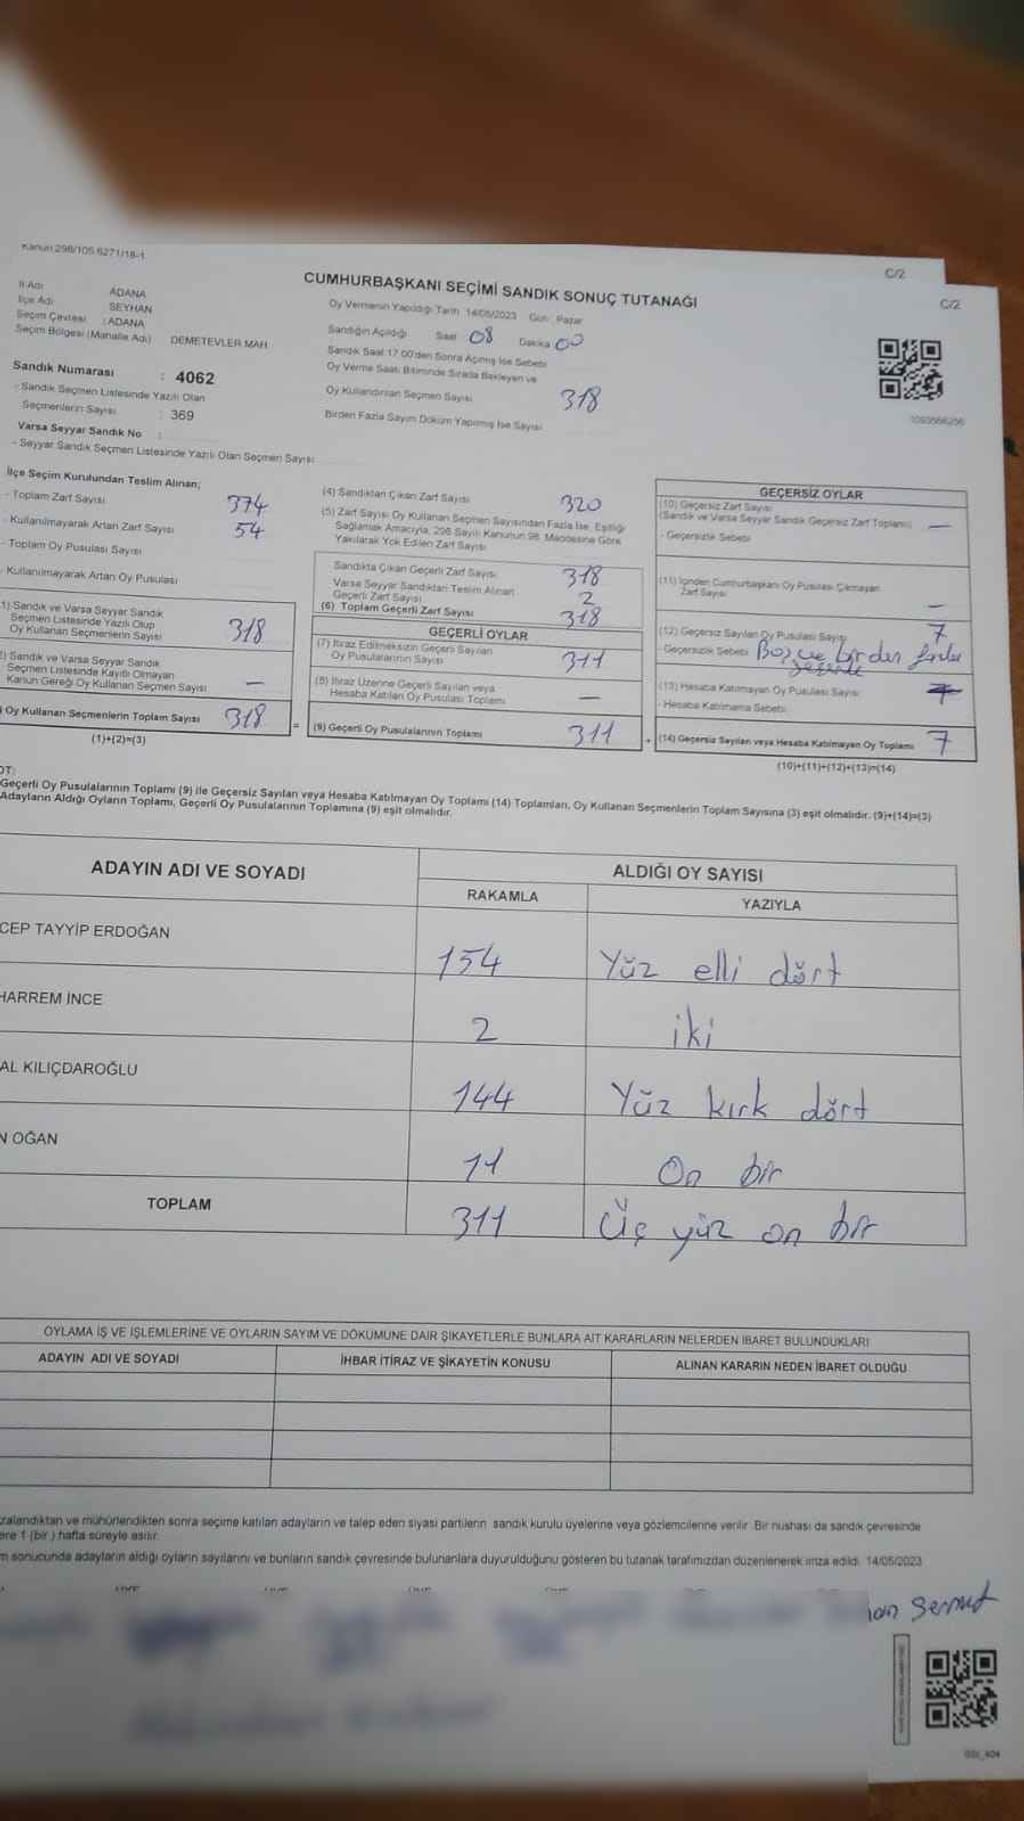 Kanun 298/105 6271/18-1
C/2
C/2
CUMHURBAŞKANI SEÇİMİ SANDIK SONUÇ TUTANAĞI
İl Adı ADANA
İlçe Adı SEYHAN
Seçim Çevresi : ADANA
Seçim Bölgesi (Mahalle Adı) DEMETEVLER MAH
Sandık Numarası : 4062
- Sandık Seçmen Listesinde Yazılı Olan
Seçmenlerin Sayısı : 369
Varsa Seyyar Sandık No :
- Seyyar Sandık Seçmen Listesinde Yazılı Olan Seçmen Sayısı
Oy Vermenin Yapıldığı Tarih 14/05/2023 Gün: Pazar
Sandığın Açıldığı Saat 08 Dakika 00
Sandık Saat 17:00'den Sonra Açılmış İse Sebebi
Oy Verme Saati Bitiminde Sırada Bekleyen ve
Oy Kullandırılan Seçmen Sayısı 318
Birden Fazla Sayım Döküm Yapılmış İse Sayısı
İlçe Seçim Kurulundan Teslim Alınan;
- Toplam Zarf Sayısı 374
- Kullanılmayarak Artan Zarf Sayısı 54
- Toplam Oy Pusulası Sayısı
- Kullanılmayarak Artan Oy Pusulası
1) Sandık ve Varsa Seyyar Sandık
Seçmen Listesinde Yazılı Olup
Oy Kullanan Seçmenlerin Sayısı 318
) Sandık ve Varsa Seyyar Sandık
Seçmen Listesinde Kayıtlı Olmayan
Kanun Gereği Oy Kullanan Seçmen Sayısı —
) Oy Kullanan Seçmenlerin Toplam Sayısı 318 =
(1)+(2)=(3)
(4) Sandıktan Çıkan Zarf Sayısı 320
(5) Zarf Sayısı Oy Kullanan Seçmen Sayısından Fazla İse, Eşitliği
Sağlamak Amacıyla, 298 Sayılı Kanunun 98. Maddesine Göre
Yakılarak Yok Edilen Zarf Sayısı
Sandıkta Çıkan Geçerli Zarf Sayısı 318
Varsa Seyyar Sandıktan Teslim Alınan
Geçerli Zarf Sayısı 2
(6) Toplam Geçerli Zarf Sayısı 318
GEÇERLİ OYLAR
(7) İtiraz Edilmeksizin Geçerli Sayılan
Oy Pusulalarının Sayısı 311
(8) İtiraz Üzerine Geçerli Sayılan veya
Hesaba Katılan Oy Pusulası Toplamı —
(9) Geçerli Oy Pusulalarının Toplamı 311 +
GEÇERSİZ OYLAR
(10) Geçersiz Zarf Sayısı
(Sandık ve Varsa Seyyar Sandık Geçersiz Zarf Toplamı) —
- Geçersizlik Sebebi
(11) İçinden Cumhurbaşkanı Oy Pusulası Çıkmayan
Zarf Sayısı —
(12) Geçersiz Sayılan Oy Pusulası Sayısı 7
- Geçersizlik Sebebi Boş ve birden fazla
(13) Hesaba Katılmayan Oy Pusulası Sayısı
- Hesaba Katılmama Sebebi
(14) Geçersiz Sayılan veya Hesaba Katılmayan Oy Toplamı 7
(10)+(11)+(12)+(13)=(14)
OT:
Geçerli Oy Pusulalarının Toplamı (9) ile Geçersiz Sayılan veya Hesaba Katılmayan Oy Toplamı (14) Toplamları, Oy Kullanan Seçmenlerin Toplam Sayısına (3) eşit olmalıdır. (9)+(14)=(3)
Adayların Aldığı Oyların Toplamı, Geçerli Oy Pusulalarının Toplamına (9) eşit olmalıdır.
ADAYIN ADI VE SOYADI ALDIĞI OY SAYISI
RAKAMLA YAZIYLA
CEP TAYYİP ERDOĞAN 154 Yüz elli dört
HARREM İNCE 2 iki
AL KILIÇDAROĞLU 144 Yüz kırk dört
N OĞAN 11 On bir
TOPLAM 311 Üç yüz on bir
OYLAMA İŞ VE İŞLEMLERİNE VE OYLARIN SAYIM VE DÖKÜMÜNE DAİR ŞİKAYETLERLE BUNLARA AİT KARARLARIN NELERDEN İBARET BULUNDUKLARI
ADAYIN ADI VE SOYADI İHBAR İTİRAZ VE ŞİKAYETİN KONUSU ALINAN KARARIN NEDEN İBARET OLDUĞU
zalandıktan ve mühürlendikten sonra seçime katılan adayların ve talep eden siyasi partilerin sandık kurulu üyelerine veya gözlemcilerine verilir. Bir nüshası da sandık çevresinde
ere 1 (bir) hafta süreyle asılır.
m sonucunda adayların aldığı oyların sayılarını ve bunların sandık çevresinde bulunanlara duyurulduğunu gösteren bu tutanak tarafımızdan düzenlenerek imza edildi. 14/05/2023